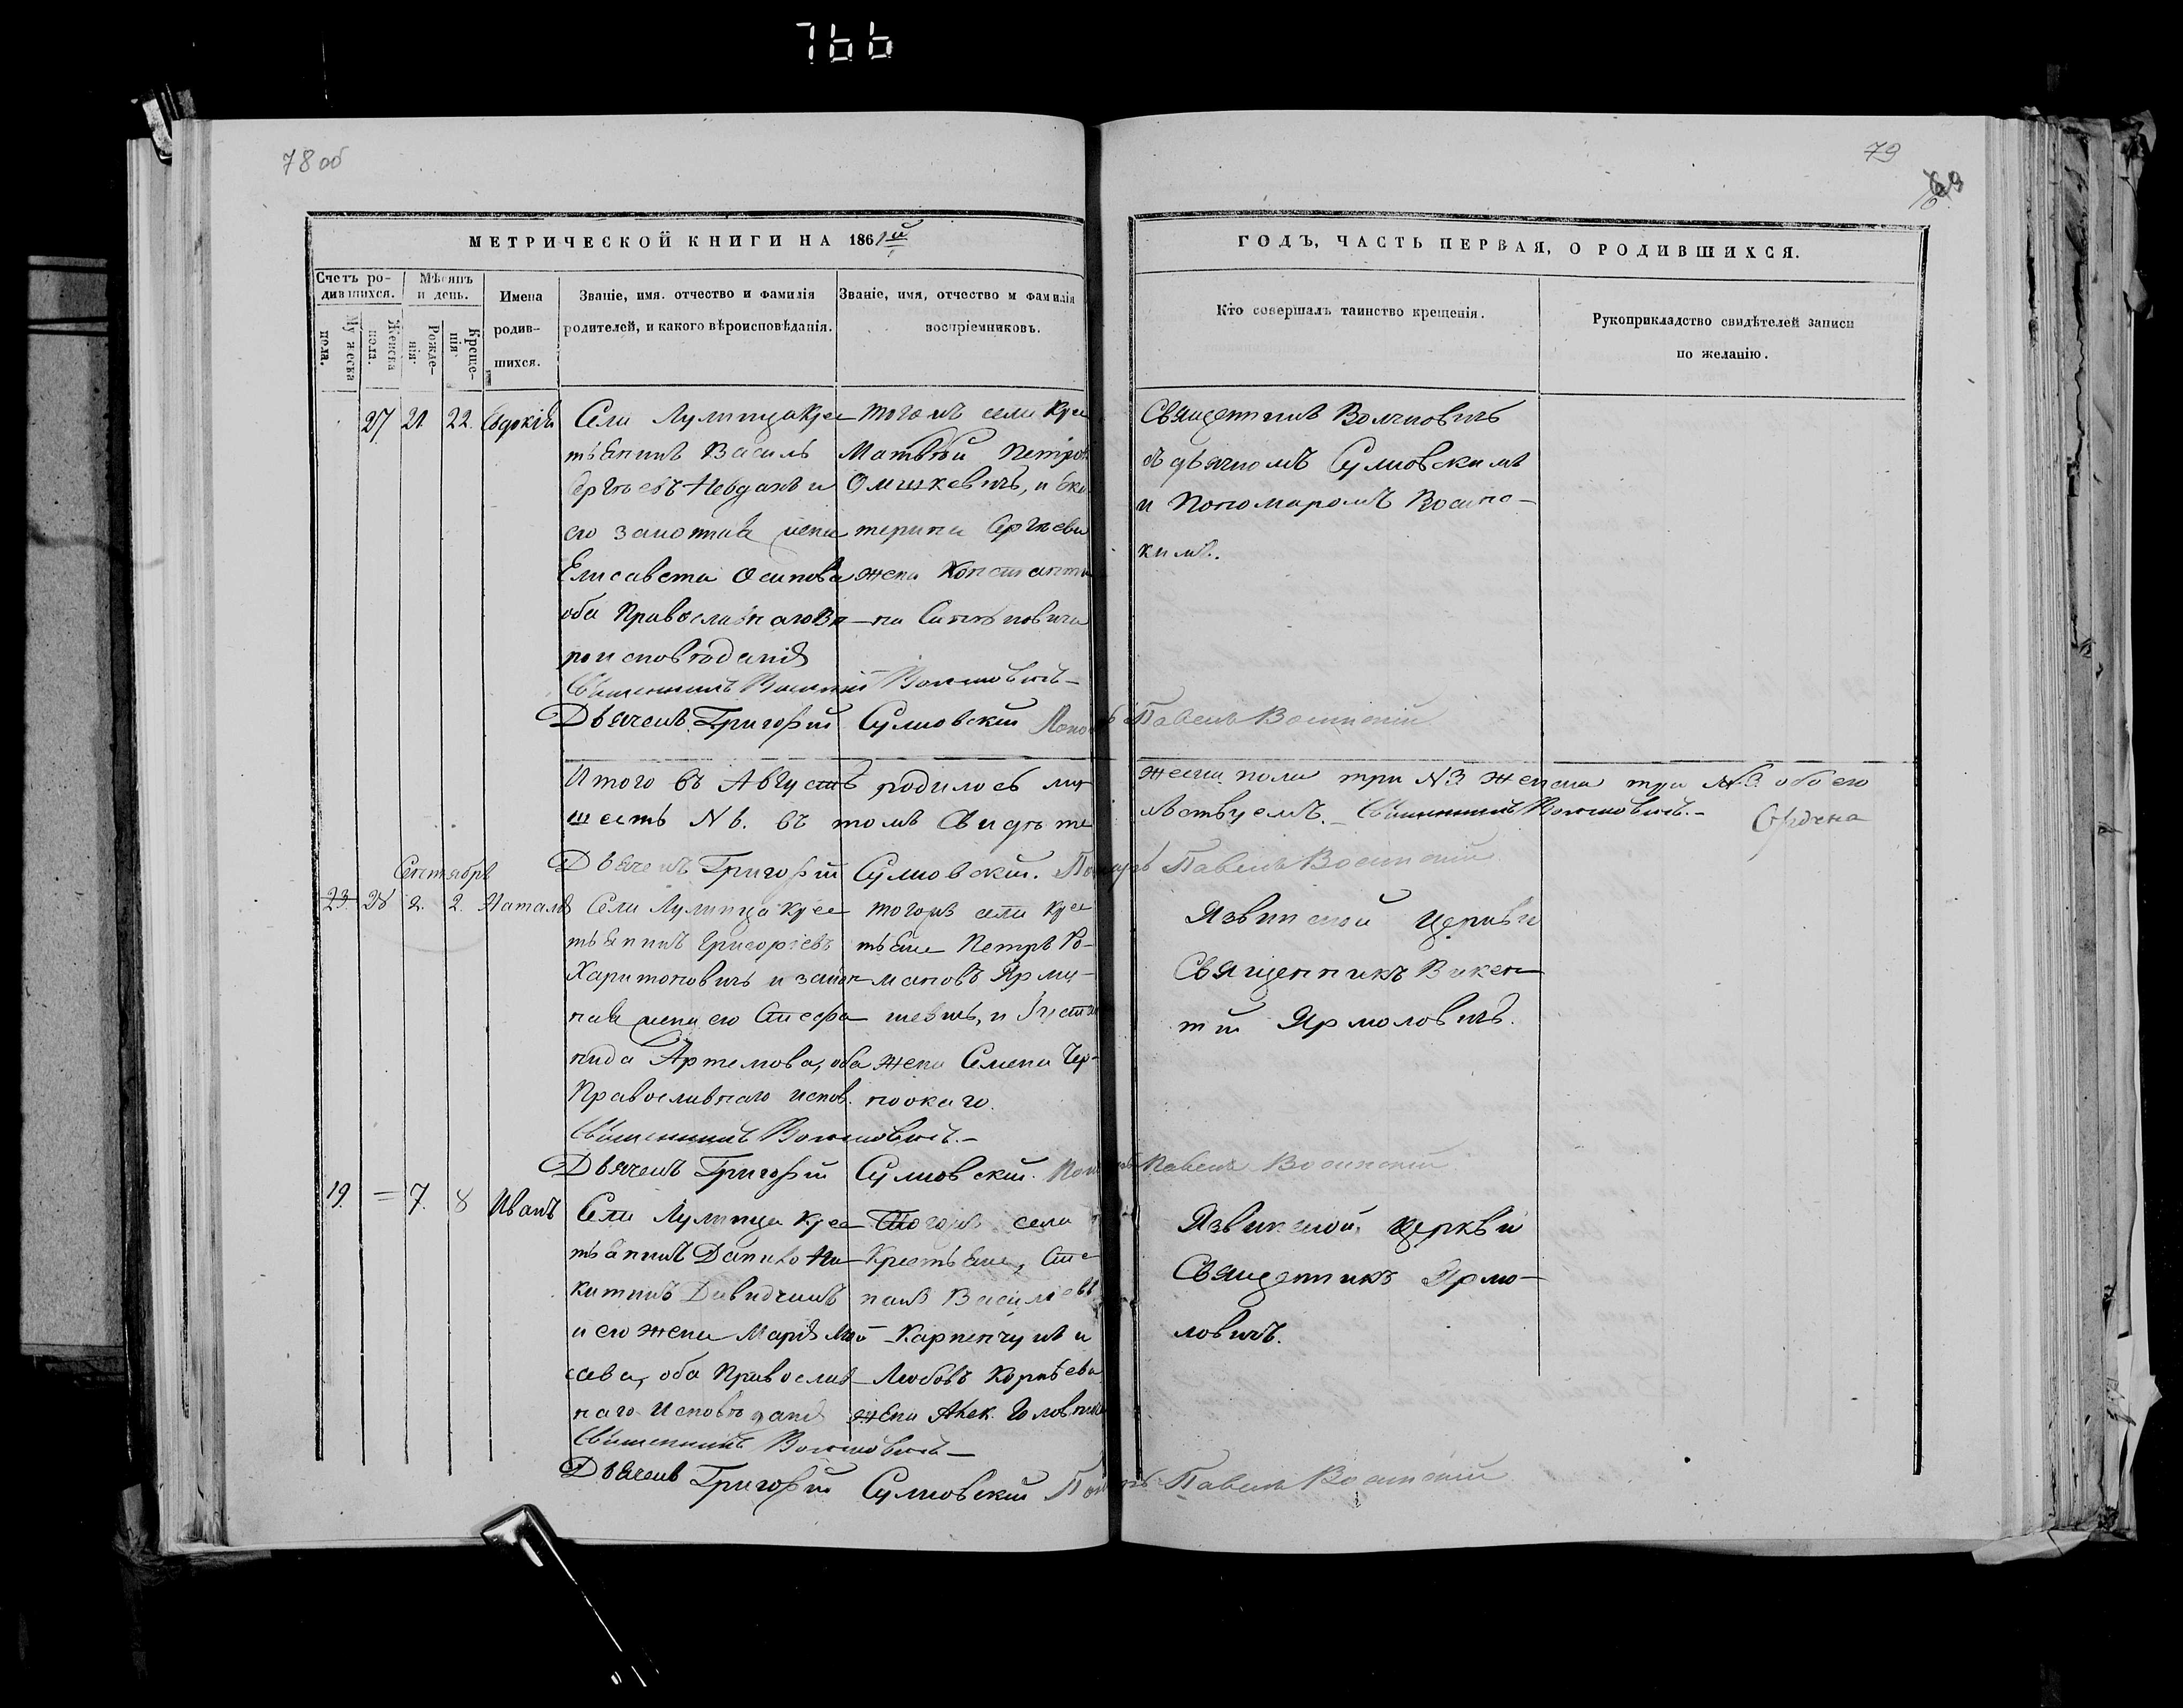 766
78 об
79
МЕТРИЧЕСКОЙ КНИГИ НА 1861й
ГОДЪ, ЧАСТЬ ПЕРВАЯ, О РОДИВШИХСЯ.
Счетъ ро-
дившихся.
Мужеска
пола.
Женска
пола.
Мѣсяцъ
и день.
Рожде-
нія.
Креще-
нія.
Имена
родив-
шихся.
Званіе, имя, отчество и фамилія
родителей, и какого вѣроисповѣданія.
Званіе, имя, отчество и фамилія
воспріемниковъ.
Кто совершалъ таинство крещенія.
Рукоприкладство свидѣтелей записи
по желанію.
27 21 22. Евдокія
Села Лулинца Крес
тьянинъ Василь
Сергѣевъ Невдахъ и
его законная жена
Елисавета Осипова
оба Православнаго Вѣ
роисповѣданія
тогожъ села Крес
Матвѣй Петров
Омишкевичъ, и Ека
терина Сергѣева
жена Константи
на
Священникъ
съ дьячкомъ Сулковскимъ
и Пономаромъ
кимъ.
Священникъ Василій
Дьячекъ Григорій Сулковскій Павелъ
Итого въ Августѣ родилось му
жеска пола три №3 женска три №3 обоего
шесть №6. въ томъ Свидѣте
льствуемъ. Священникъ
Дьячекъ Григорій Сулковскій. Павелъ
Сентябрь
23. 28 2. 2. Наталія
Села Лулинца Крес
тьянинъ Григоріевъ
Харитоновичъ и закон
ная жена его Стефа
нида Артемова, оба
Православнаго испов.
тогожъ села Крес
тьяне Петръ Ро-
мановъ Ярму-
шевичъ, и
жена Семена Чер-
Язвинской Церкви
Священникъ Викен
тій Ярмоловичъ.
Священникъ
Дьячекъ Григорій Сулковскій. Павелъ
19. = 7. 8 Иванъ
Села Лулинца Крес
тьянинъ Данило Ни
китинъ Давидчикъ
и его жена Марія Мой
сева, оба Православ
наго Исповѣданія
Тогожъ села
Крестьяне, Сте
панъ Василіевъ
Карпенчукъ и
Любовь Корнѣева
жена Алек.
Язвинской Церкви
Священникъ Ярмо-
ловичъ.
Священникъ
Дьячекъ Григорій Сулковскій Павелъ